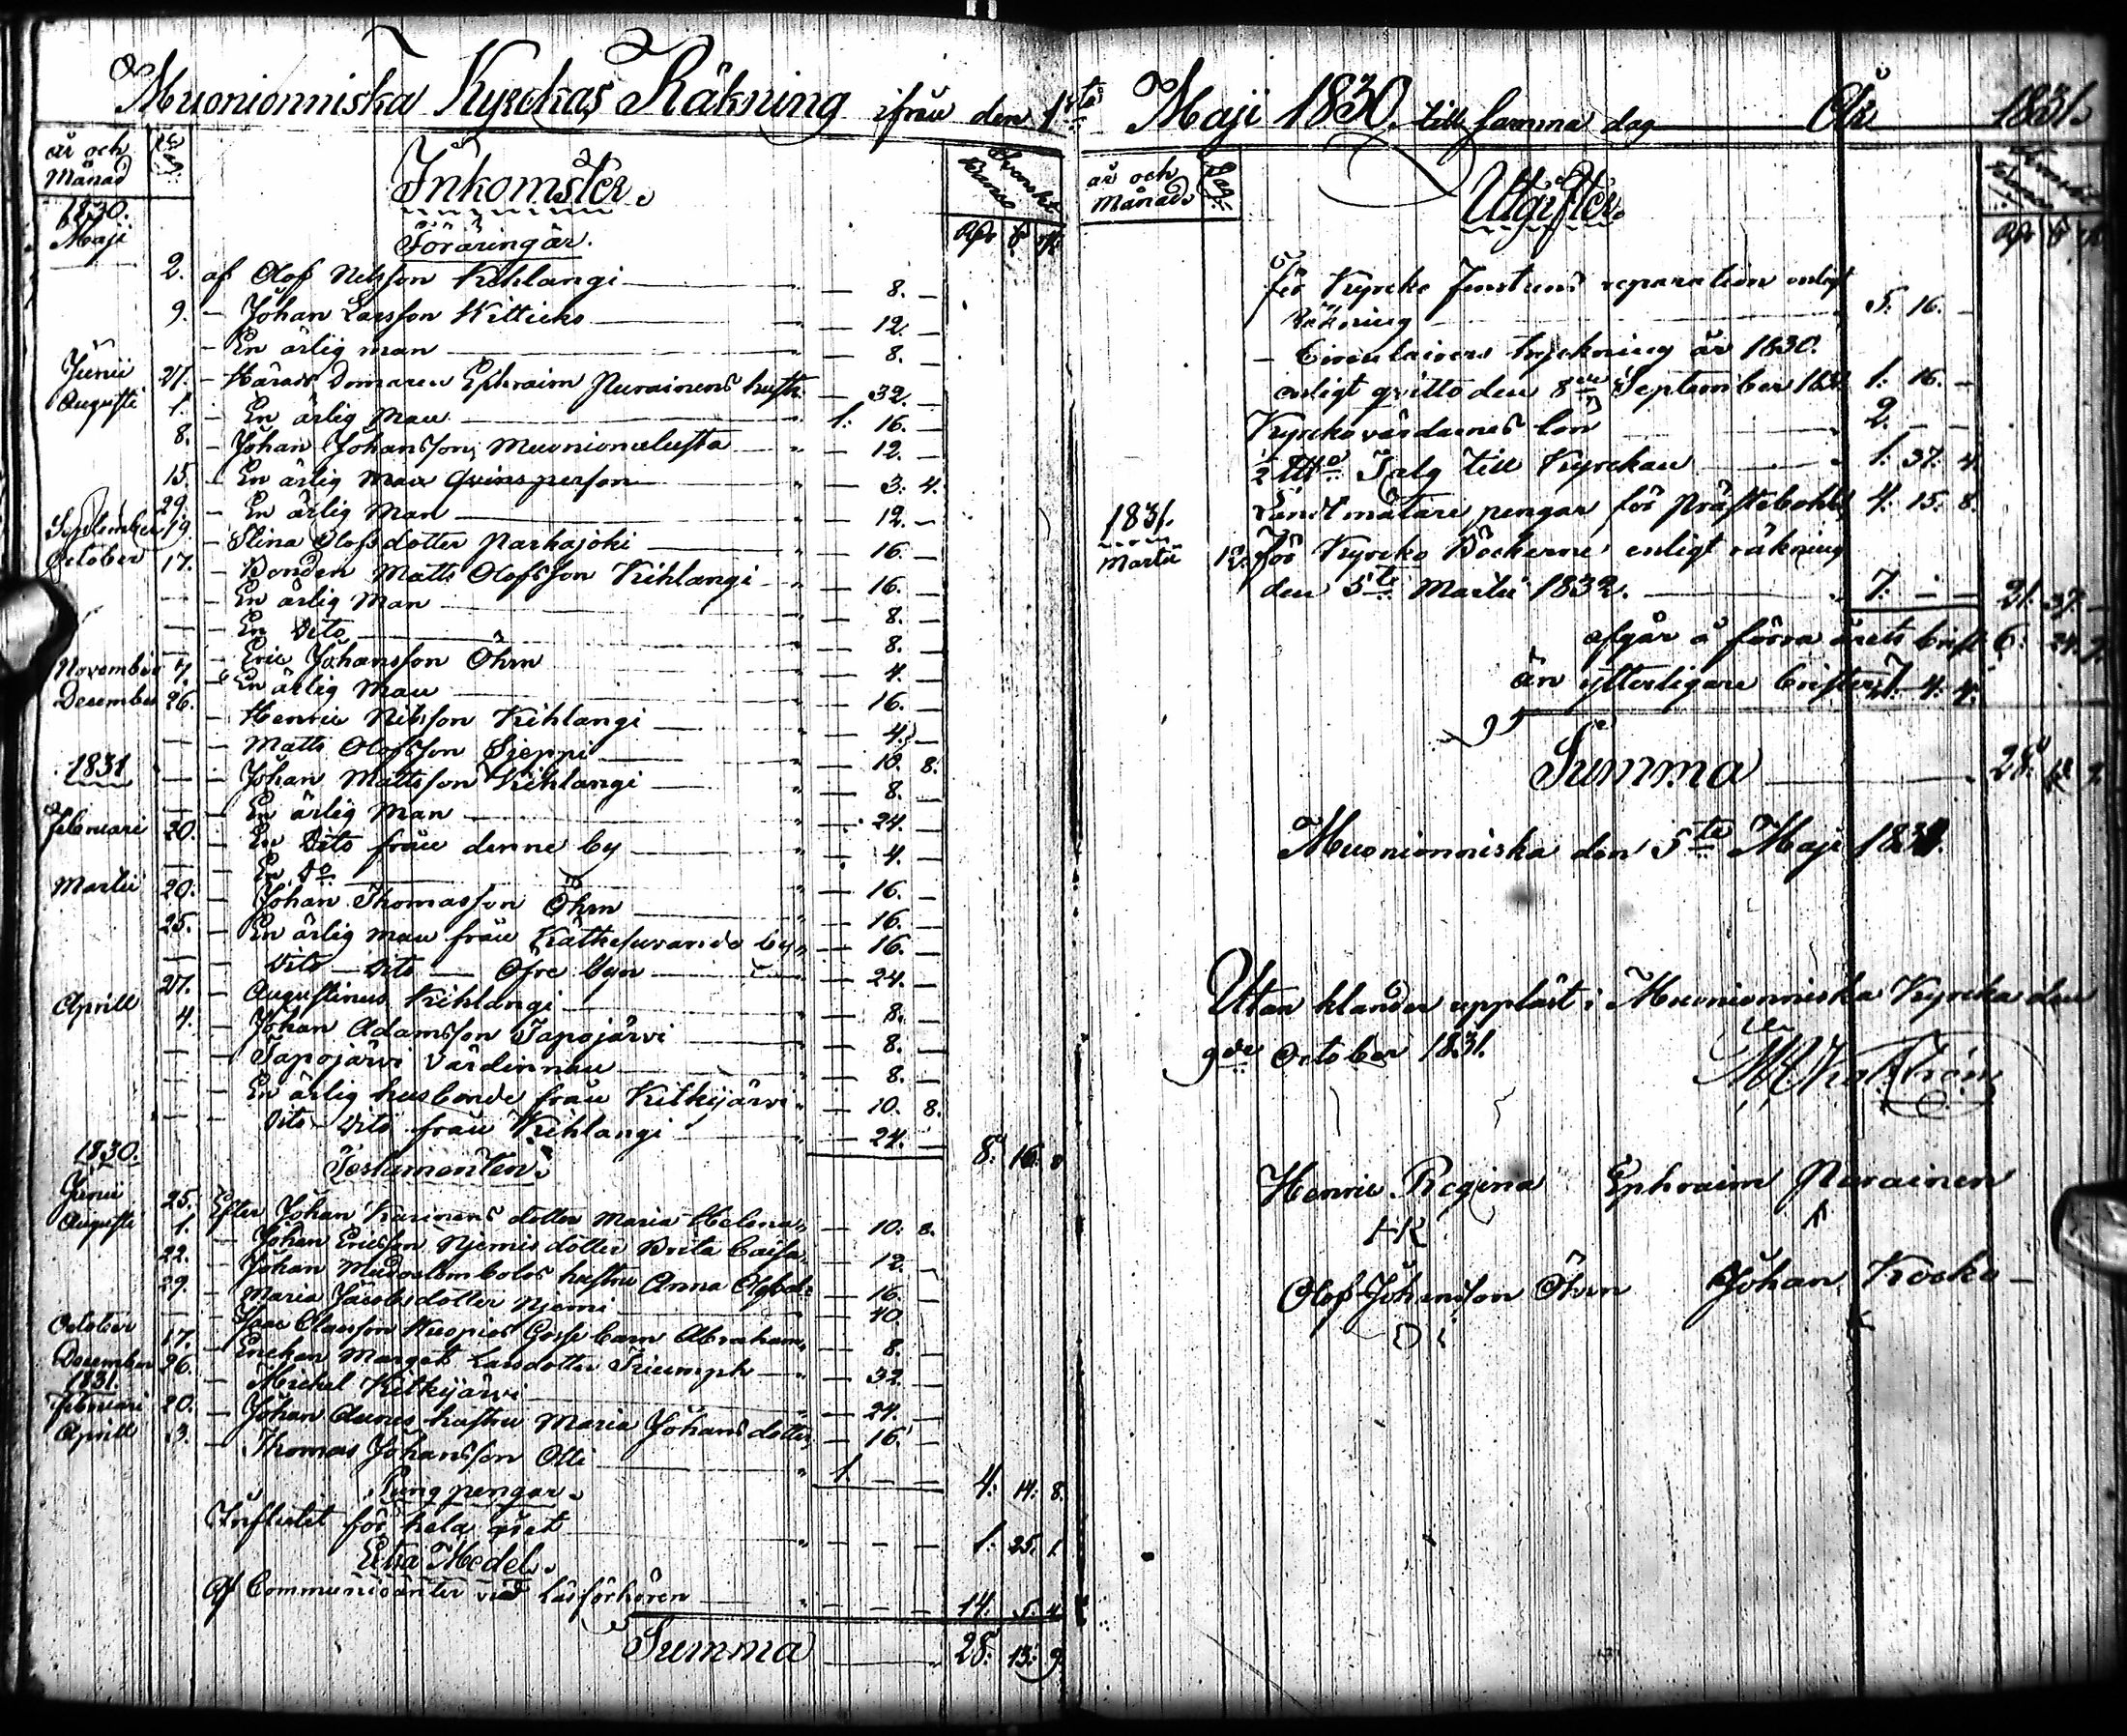 Muonionniska Kyrckas Räkning ifrån den 1sta
år och Månad Dag: Inkomster. Svenskt Banco
Rdr ß rst
1830. Föräringar.
Maji 2. af Olof Nilsson Kihlangi — 8. —
9. — Johan Larsson Kitticko — 12. —
— En ärlig man — 8. —
Junii 27. — Härads Domaren Ephraim Purainens hustru — 32. —
Augusti 1. — En ärlig Man 1. 16. —
8. — Johan Johansson, Muonionalusta — 12. —
15. — En ärlig Man Qvinsperson — 3. 4.
29. — En ärlig Man — 12. —
September 19. — Stina Olofsdotter Parkajoki — 16. —
October 17. — Bonden Matts Olofsson Kihlangi — 16. —
— — En ärlig Man — 8. —
— — En Dito — 8. —
— — Eric Johansson Öhrn — 4. —
November 7. — En ärlig Man — 16. —
December 26. — Henric Nilsson Kihlangi — 4. —
— — Matts Olofsson Sieppi — 10. 8.
1831 — — Johan Mattsson Kihlangi — 8. —
— — En ärlig Man — 24. —
Februari 20. — En Dito från denne by — 4. —
— — En Do — 16. —
Martii 20. — Johan Thomasson Öhrn — 16. —
25. — En ärlig man från Kätkesuvando by — 16. —
— — Dito — Dito — Öfre byn — 24. —
27. — Augustinus Kihlangi — 8. —
Aprill 4. — Johan Adamsson Tapojärvi — 8. —
— — Tapojärvi Värdinnan — 8. —
— — En ärlig husbonde från Kitkijärvi — 10. 8.
— — Dito — Dito från Kihlangi — 24. — 8. 16. 8
1830. Testamenten.
Junii 25. Efter Johan Karinens dotter Maria Helena — 10. 8.
Augusti 1. — Johan Ericsson Njemis dotter Brita Caisa — 12. —
22. — Johan hustru Anna — 16. —
29. — Maria Jacobsdotter Njemi — 40. —
— Isaac Clausson Kuopios Gosse barn Abraham — 8. —
October 17. — Enckan Margets Larsdotter Triumph — 32. —
December 26. — Mickel Kitkijärvi — 24. —
1831.
Februari 20. — Johan hustru Maria Johansdotter — 16. —
Aprill 3. — Thomas Johansson Olli 1. — — 4. 14. 8.
Pung pengar.
Influtit för hela året — — — 1. 25. 1.
Extra Medel.
Af Communicanter vid Läsförhören — — — 14. 5. 4
Summa 28. 13. 9.
Maji 1830. till samma dag År 1831.
år och Månad Dag: Utgifter. Svenskt Banco
Rdr ß rst
för Kyrcko fenstrens reparation enligt
Räkning 5. 16. —
— Circulairers tryckning år 1830.
enligt qvitto den 8de September 1830 1. 16. —
Kyrckovärdarnes lön 2. — —
½ Talg till Kyrckan 1. 37. 4.
1831. Landtmätare pengar för Prästebohlet 4. 15. 8.
Martii 12. för Kyrcko Böckerne enligt räkning
den 5te Martii 1832. 7. — — 21. 37. —
afgår å förra årets brist 6. 24. 9.
än ytterligare brister 7. 4. 4.
Summa 28. 13. 9.
Muonionniska den 5te Maji 1831.
Utan klander uppläst i Muonionniska Kyrcka den
9de October 1831.
Henric Regina Ephraim Purainen
HR
Olof Johansson Öhrn Johan Kocko